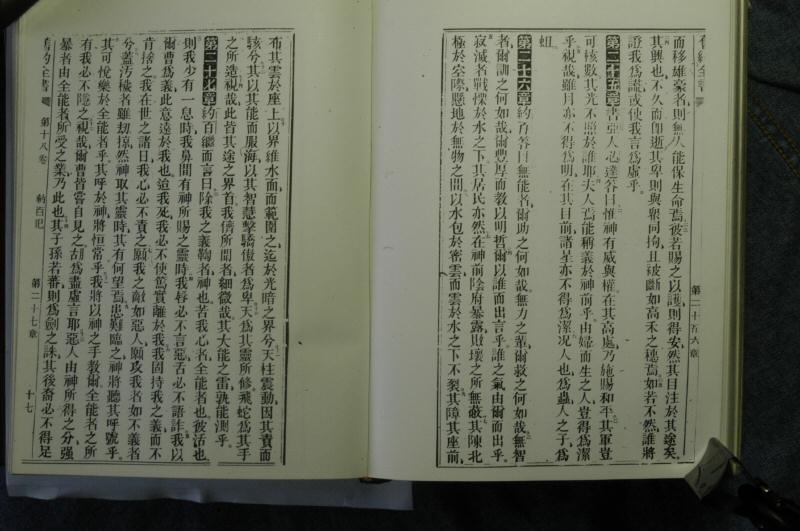 舊約全書
第二十五六章
而移雄豪者則無人能保生命焉彼若賜之以護則得安然其目注於其途矣
其興也不久而即逝其卑則與眾同拘且被斷如高禾之穗焉如若不然誰將
證我爲謊或使我言爲虛乎
第二十五章書亞人必達答曰惟神有威與權在其高處乃施賜和平其軍豈
可核數其光不照於誰耶夫人焉能稱義於神前乎由婦而生之人豈得爲潔
乎視哉雖月亦不得爲明在其目前諸星亦不得爲潔况人也爲蟲人之子爲
蛆
第二十六章約百答曰無能者爾助之何如哉無力之輩爾救之何如哉無智
者爾訓之何如哉爾豐厚而教以明哲爾以誰而出言乎誰之氣由爾而出乎
寂滅者戰慄於水之下其居民亦然在神前陰府暴露敗壞之所無蔽其陳北
極於空際懸地於無物之間以水包於密雲而雲於水之下不裂其障其座前
布其雲於座上以界維水面而範圍之迄於光暗之界分天柱震動因其責而
駭兮其以其能而服海以其智慧擊驕傲者爲卑天爲其靈所修飛蛇爲其手
之所造視哉此皆其途之界首我儕所聞者細微哉其大能之雷孰能測乎
第二十七章約百繼而言曰除我之義鞫者神也苦我心者全能者也彼活也
則我少有一息時我鼻間有神所賜之靈時我辱必不言惡舌必不語詐我以
爾曹爲義此意遠於我也迨我死我必不使篤實離於我我固持我之義而不
肯捨之我在世之諸日我心必不責之願我之敵如惡人願攻我者如不義者
兮蓋汚穢者雖刧掠然神取其靈時其有何望焉患難臨之神將聽其呼號乎
其可悅樂於全能者乎其呼於神將恒常乎我將以神之手教爾全能者之所
有我必不隱之視哉爾曹皆嘗自見之胡爲盡虛言耶惡人由神所得之分强
暴者由全能者所受之業乃此也其子孫若蕃則爲劍之誅其後裔必不得足
舊約全書
第十八卷
約百記
第二十七章
十七